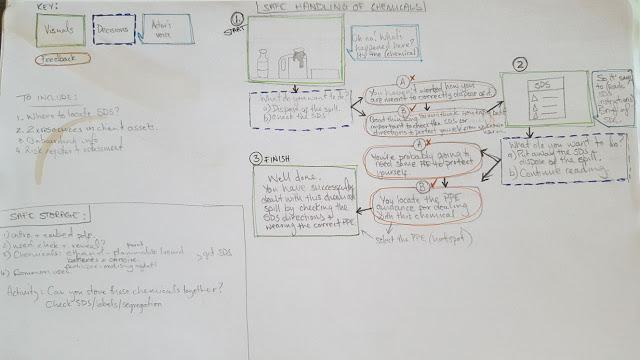 KEY:
Visuals
Decisions
Actor's
voice
Feedback
TO INCLUDE:
1. Where to locate SDS?
2. 2x resources in client assets
3. Onboarding info
4. Risk register + assessment
SAFE STORAGE:
1) intro + embed pdf.
2) user check + reveal?
3) Chemicals: ethanol - flammable liquid
paint
get SDS
4) Common uses
Activity: Can you store these chemicals together?
Check SDS/labels/segregation
SAFE HANDLING OF CHEMICALS
1.
START
Oh no! What's
happened here?
the chemical
What do you want to do?
a) Dispose of the spill.
b) Check the SDS
A
You haven't worked how you
are meant to correctly dispose of it.
B
Good thinking. You think
important to check the SDS for
directions + protect yourself even
2
SDS
So, it says
to read
entirety
of SDS.
What do you want to do?
a) Put away the SDS +
dispose of the spill.
b) Continue reading.
A
You're probably going to
need some PPE to protect
yourself.
B
You locate the PPE
guidance for dealing
with this chemical
select the PPE (hotspot)
3 FINISH
Well done.
You have successfully
dealt with this chemical
spill by checking the
SDS directions +
wearing the correct PPE